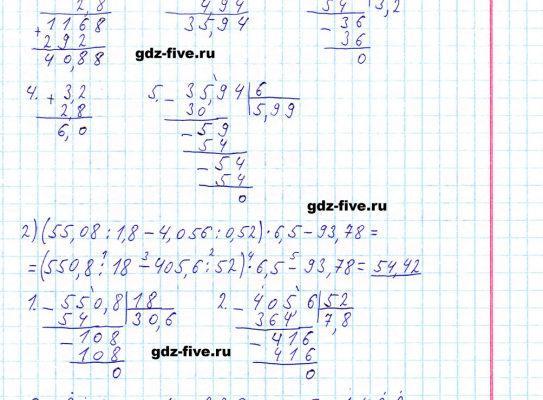 2,8 4,94 54 3,2
+ 1168 35,94 - 36
292 36
40,88 0
gdz-five.ru
4. + 3,2 5. - 35,94 6
2,8 30 5,99
6,0 - 59
54
- 54
54
0
gdz-five.ru
2) (55,08 : 1,8 - 4,056 : 0,52) · 6,5 - 93,78 =
= (550,8 : 18 - 405,6 : 52) · 6,5 - 93,78 = 54,42
1. - 550,8 18 2. - 405,6 52
54 30,6 364 7,8
- 108 - 416
108 416
0 0
gdz-five.ru